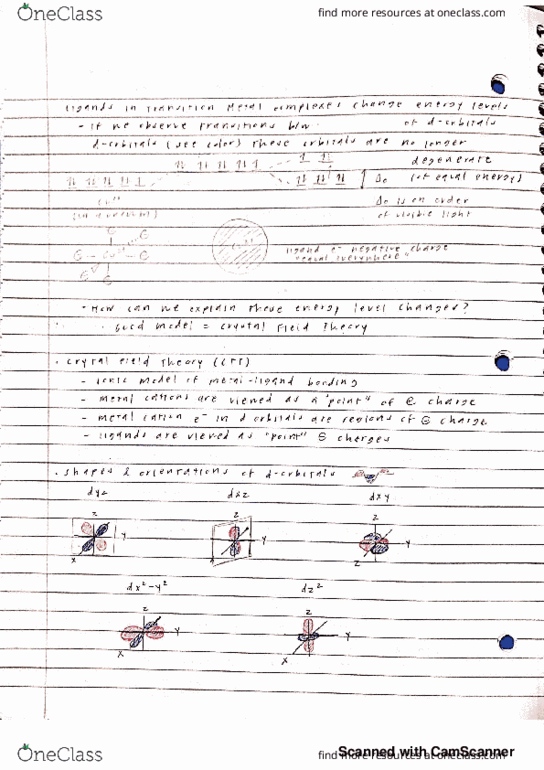 OneClass
find more resources at oneclass.com
ligands in transition metal complexes change energy levels
- if we observe transitions b/w of d-orbitals
d-orbitals (see color) these orbitals are no longer
degenerate
Δo (of equal energy)
Δo is on order
of visible light
ligand e- negative charge
"equal everywhere"
- How can we explain these energy level changes?
Good model = crystal Field Theory
. crystal Field Theory (CFT)
- ionic model of metal-ligand bonding
- metal cations are viewed as a "point" of ⊕ charge
- metal cation e- in d orbitals are regions of ⊖ charge
- ligands are viewed as "point" ⊖ charges
. shapes & orientations of d-orbitals
dyz dxz dxy
z z z
y y y
x
dx²-y² dz²
z z
y y
x x
OneClass
find more resources at oneclass.com
Scanned with CamScanner